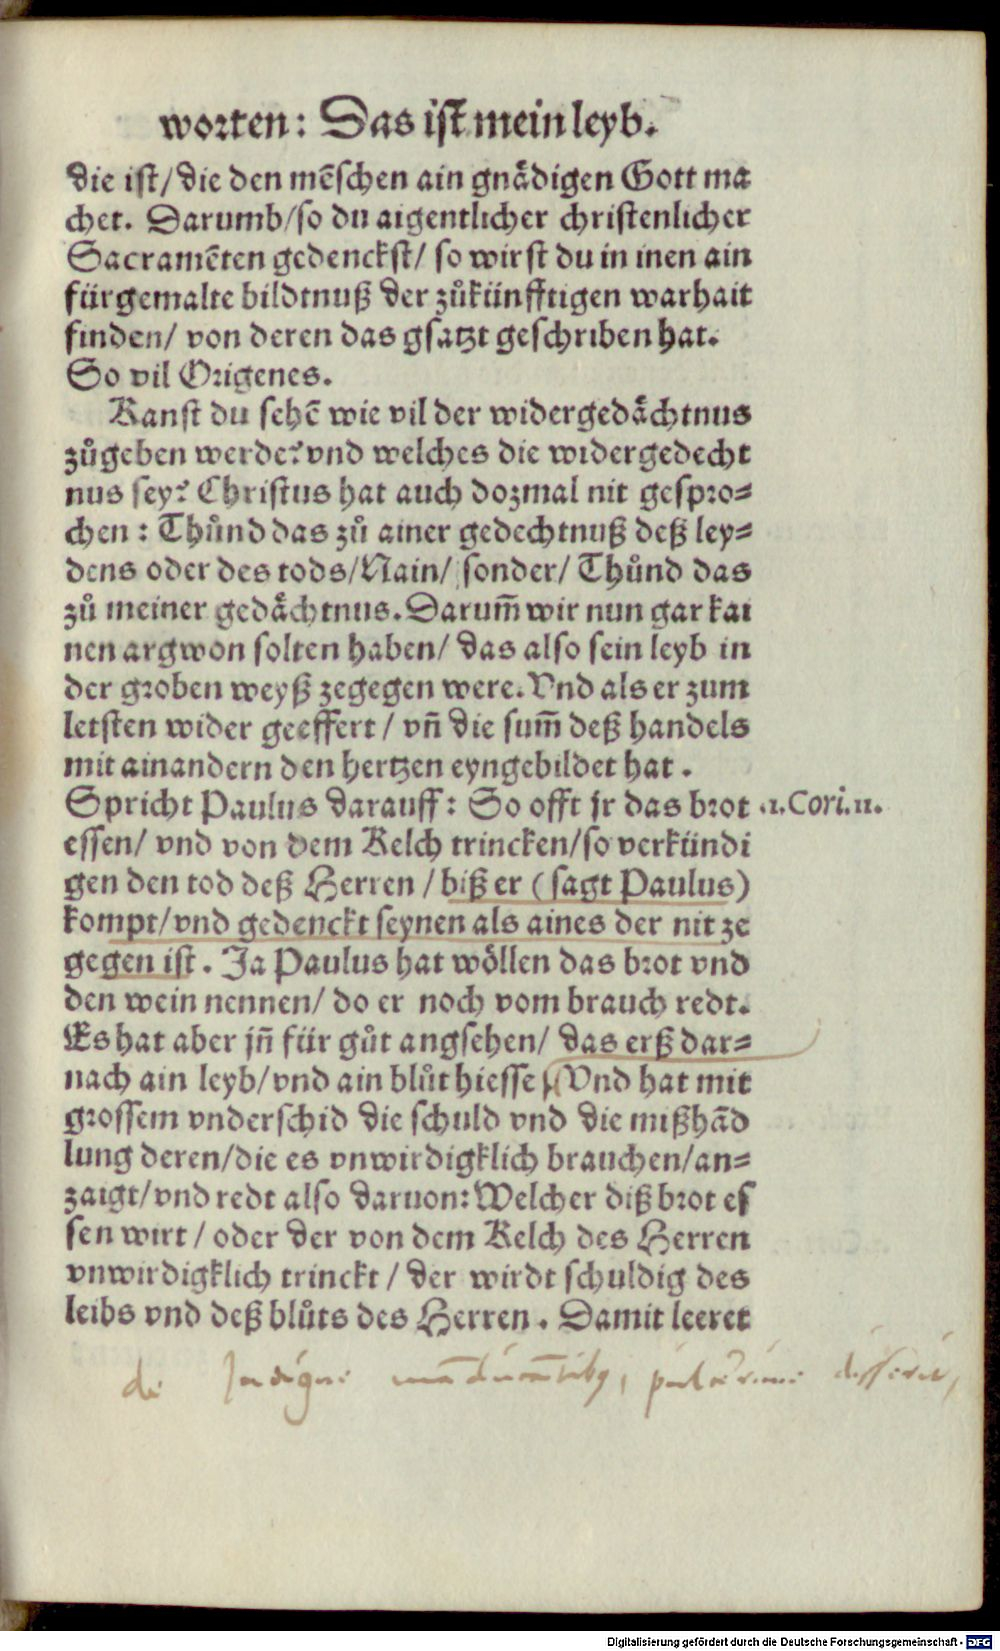 worten: Das ist mein leyb.
die ist/ die den mēschen ain gnaͤdigen Gott ma
chet. Darumb/ so du aigentlicher christenlicher
Sacramēten gedenckst/ so wirst du in inen ain
fürgemalte bildtnuß der zuͦkünfftigen warhait
finden/ von deren das gsatzt geschriben hat.
So vil Origenes.
Kanst du sehē wie vil der widergedaͤchtnus
zuͦgeben werde? vnd welches die widergedecht
nus sey? Christus hat auch dozmal nit gespro⸗
chen: Thuͦnd das zuͦ ainer gedechtnuß deß ley⸗
dens oder des tods/ Nain/ sonder/ Thuͦnd das
zuͦ meiner gedaͤchtnus. Darum̄ wir nun gar kai
nen argwon solten haben/ das also sein leyb in
der groben weyß zegegen were. Vnd als er zum
letsten wider geeffert/ vn̄ die sum̄ deß handels
mit ainandern den hertzen eyngebildet hat.
Spricht Paulus darauff: So offt jr das brot .1. Cori. 11.
essen/ vnd von dem Kelch trincken/ so verkündi
gen den tod deß Herren/ biß er (sagt Paulus)
kompt/ vnd gedenckt seynen als aines der nit ze
gegen ist. Ja Paulus hat woͤllen das brot vnd
den wein nennen/ do er noch vom brauch redt.
Es hat aber jn̄ für guͦt angsehen/ das erß dar⸗
nach ain leyb/ vnd ain bluͦt hiesse/ Vnd hat mit
grossem vnderschid die schuld vnd die mißhād
lung deren/ die es vnwirdigklich brauchen/ an⸗
zaigt/ vnd redt also daruon: Welcher diß brot es
sen wirt/ oder der von dem Kelch des Herren
vnwirdigklich trinckt/ der wirdt schuldig des
leibs vnd deß bluͦts des Herren. Damit leeret
de Indigne
Digitalisierung gefördert durch die Deutsche Forschungsgemeinschaft - DFG